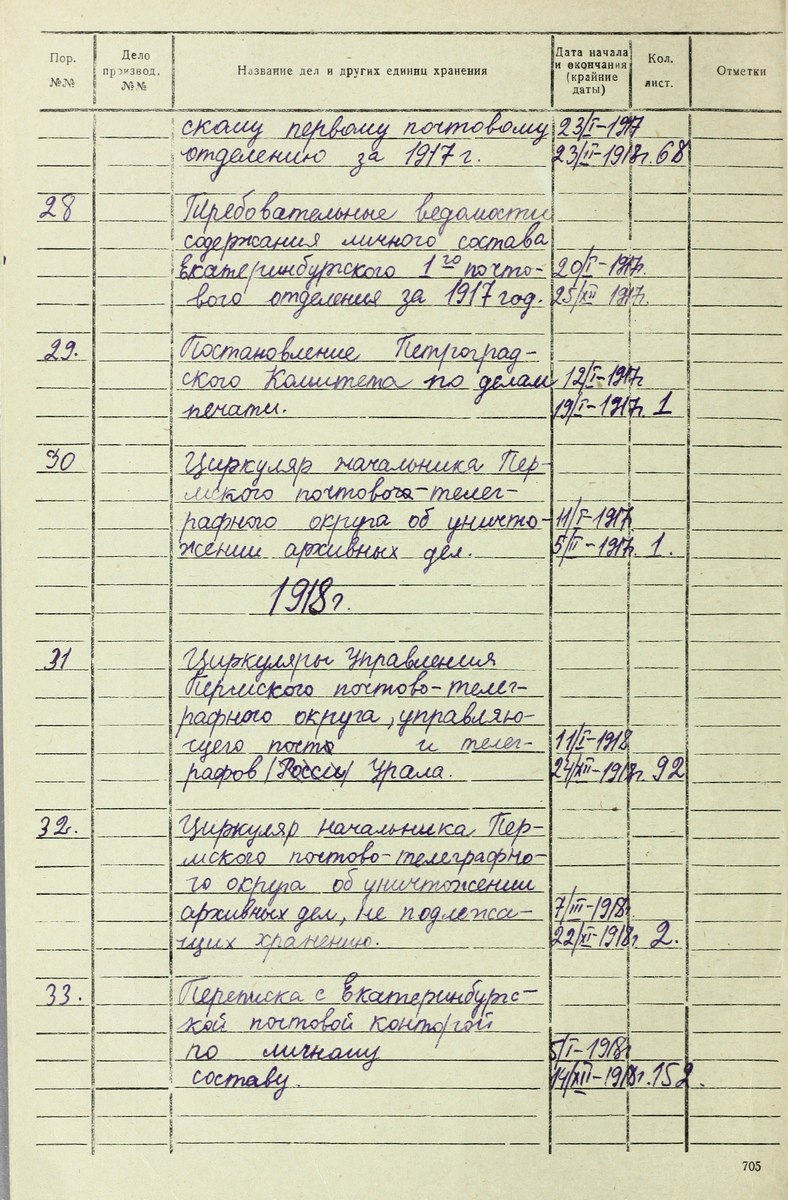 Пор. №№ Дело производ. №№ Название дел и других единиц хранения Дата начала и окончания (крайние даты) Кол. лист. Отметки
скому первому почтовому 23/I-1917
отделению за 1917 г. 23/II-1918г. 68
28 Требовательные ведомости
содержания личного состава
Екатеринбургского 1го почто- 20/I-1917г.
вого отделения за 1917 год. 25/XII 1917г.
29. Постановление Петроград-
ского Комитета по делам 12/I-1917г
печати. 19/I-1917г. 1
30 Циркуляр начальника Пер-
мского почтового-телег-
рафного округа об уничто- 11/I-1917г.
жении архивных дел. 5/II-1917г. 1.
1918г.
31 Циркуляры Управления
Пермского почтово-телег-
рафного округа, управляю-
щего почт и телег- 11/I-1918
рафов /России/ Урала. 24/XII-1918г. 92
32. Циркуляр начальника Пер-
мского почтово-телеграфно-
го округа об уничтожении
архивных дел, не подлежа- 7/III-1918г.
щих хранению. 22/XI-1918г 2.
33. Переписка с Екатеринбургс-
кой почтовой конторой
по личному 5/I-1918г
составу. 14/XII-1918г. 152.
705